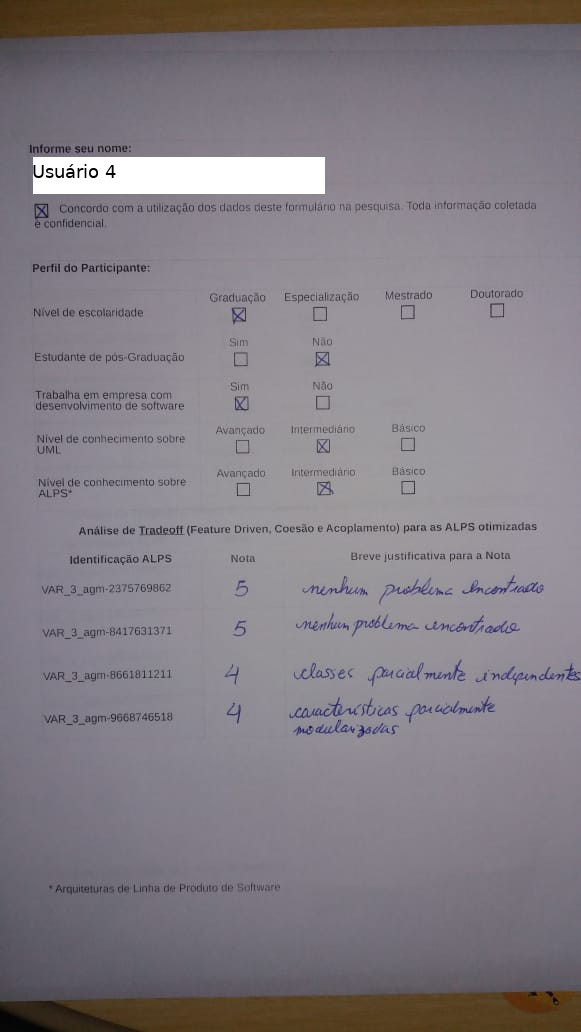 Informe seu nome:
Usuário 4
Concordo com a utilização dos dados deste formulário na pesquisa. Toda informação coletada
é confidencial.
Perfil do Participante:
Graduação Especialização Mestrado Doutorado
Nível de escolaridade
Sim Não
Estudante de pós-Graduação
Sim Não
Trabalha em empresa com
desenvolvimento de software
Avançado Intermediário Básico
Nível de conhecimento sobre
UML
Avançado Intermediário Básico
Nível de conhecimento sobre
ALPS*
Análise de Tradeoff (Feature Driven, Coesão e Acoplamento) para as ALPS otimizadas
Identificação ALPS Nota Breve justificativa para a Nota
VAR_3_agm-2375769862 5 nenhum problema encontrado
VAR_3_agm-8417631371 5 nenhum problema encontrado
VAR_3_agm-8661811211 4 classes parcialmente independentes
VAR_3_agm-9668746518 4 características parcialmente
modularizadas
* Arquiteturas de Linha de Produto de Software